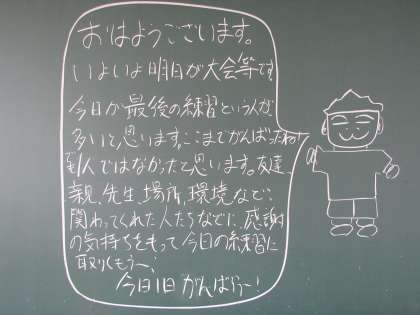 おはようございます。
いよいよ明日が大会等です
今日が最後の練習という人が
多いと思います。ここまでがんばったねは
1人ではなかったと思います。友達、
親、先生、場所、環境など、
関わってくれた人たちなどに、感謝
の気持ちをもって今日の練習に
取りくもう〜、
今日1日がんばろう〜!